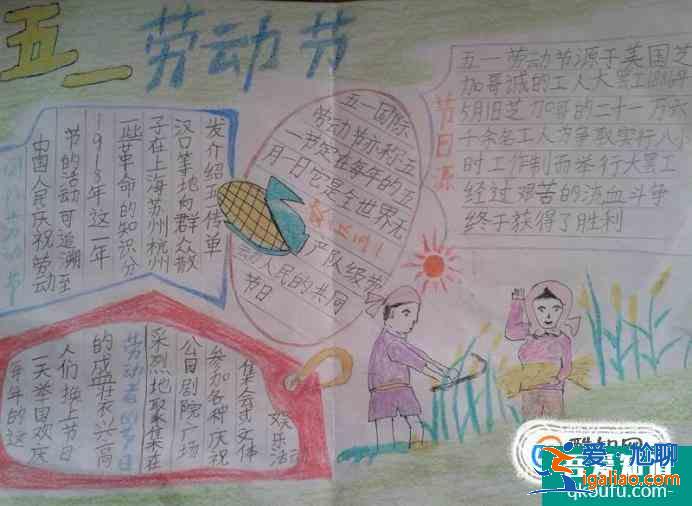 五一劳动节
五一劳动节源于美国芝
加哥城的工人大罢工1886年
5月1日芝加哥的二十一万六
千余名工人为争取实行八小
时工作制而举行大罢工
经过艰苦的流血斗争
终于获得了胜利
节日
五一国际
劳动节亦称五
一节定在每年的五
月一日它是全世界无
产队级劳
动人民的共同
节日
劳动节
中国人民庆祝劳动
节的活动可追溯至
1918年这一年
一些革命的知识分
子在上海苏州杭州
汉口等地向群众散
发介绍五一传单
年的这
一天举国欢庆
人们换上节日
的盛装兴高
劳动者的节日
采烈地聚集在
公园剧院广场
参加各种庆祝
集会或文体
娱乐活动
爱尬聊
igaliao.com